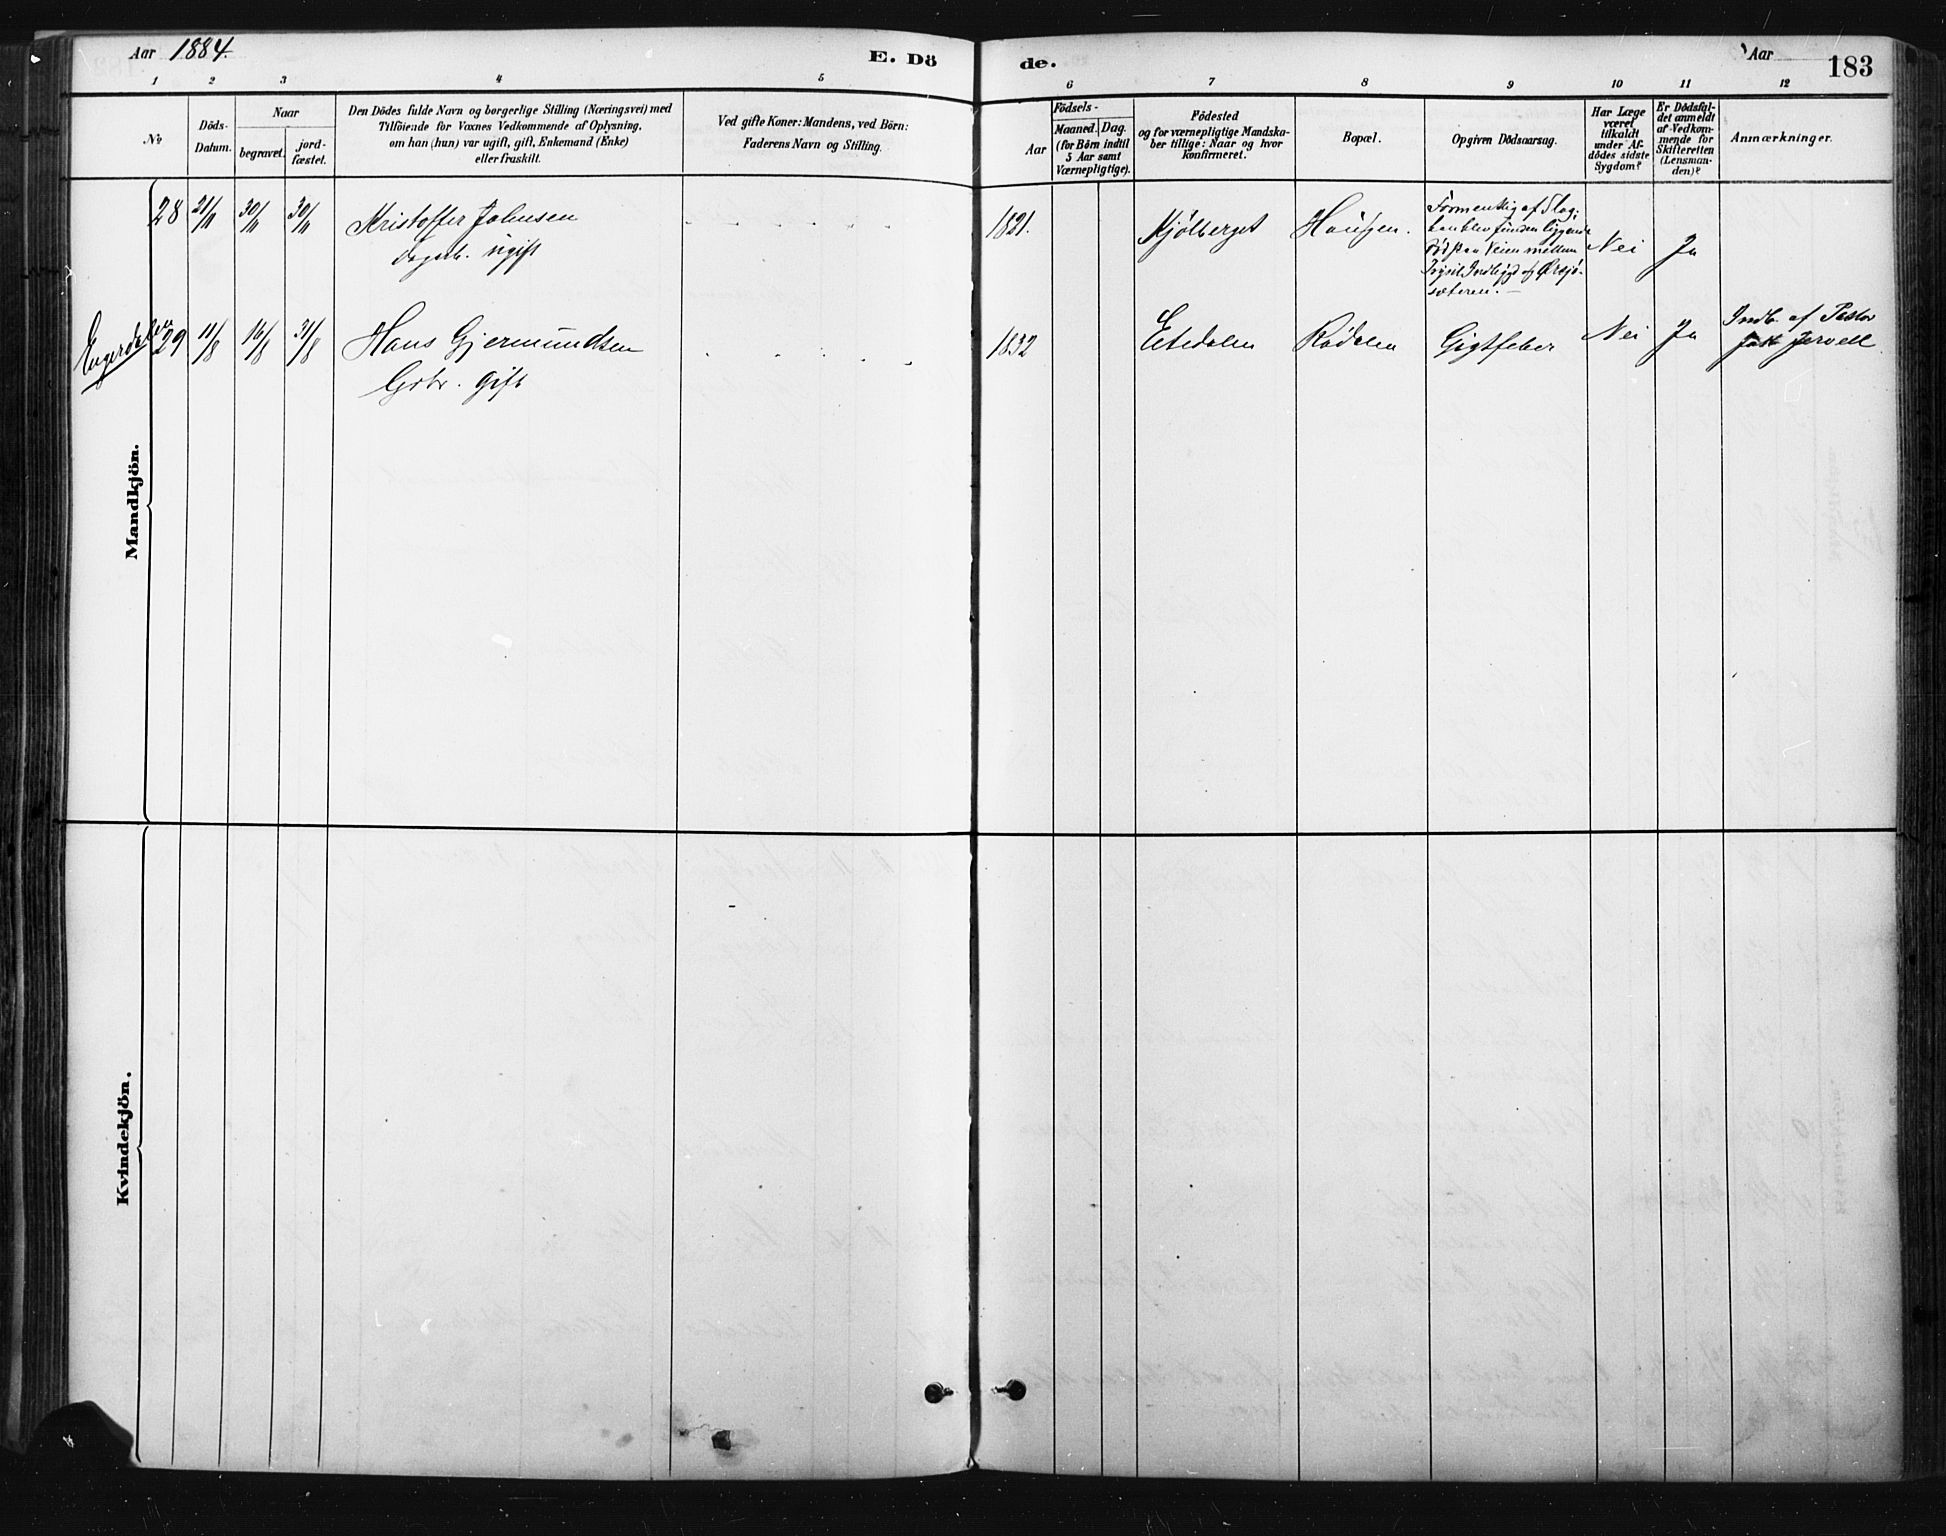 Aar 1884.
E. Dö
de.
Aar
183
1 2 3 4 5 6 7 8 9 10 11 12
No
Döds-
Datum.
Naar
begravet.
jord-
fæstet.
Den Dödes fulde Navn og borgerlige Stilling (Næringsvei) med
Tilföiende for Voxnes Vedkommende af Oplysning,
om han (hun) var ugift, gift, Enkemand (Enke)
eller fraskilt.
Ved gifte Koner: Mandens, ved Börn:
Faderens Navn og Stilling.
Födsels-
Aar
Maaned. Dag.
(for Börn indtil
5 Aar samt
Værnepligtige).
Födested
og for værnepligtige Mandska-
ber tillige: Naar og hvor
konfirmeret.
Bopæl.
Opgiven Dödsaarsag.
Har Læge
været
tilkaldt
under Af-
dödes sidste
Sygdom?
Er Dödsfal-
det anmeldt
af Vedkom-
mende for
Skifteretten
(Lensman-
den)?
Anmærkninger.
Mandkjön.
28 21/11 30/11 30/11 Kristoffer Johnsen
Dagarb. ugift
1821. Kjölberget Haugen.
Formentlig af Slag;
han blev funden liggende
död paa Veien mellem
Trysil Indbygd og Ørsjø-
sæteren.
Nei Ja
Engerdalen
29 11/8 16/8 31/8 Hans Gjermundsen
Gbr. gift
1832 Elvdalen Rødalen Gigtfeber Nei Ja
Indb. af Pastor
Jervell
Kvindekjön.